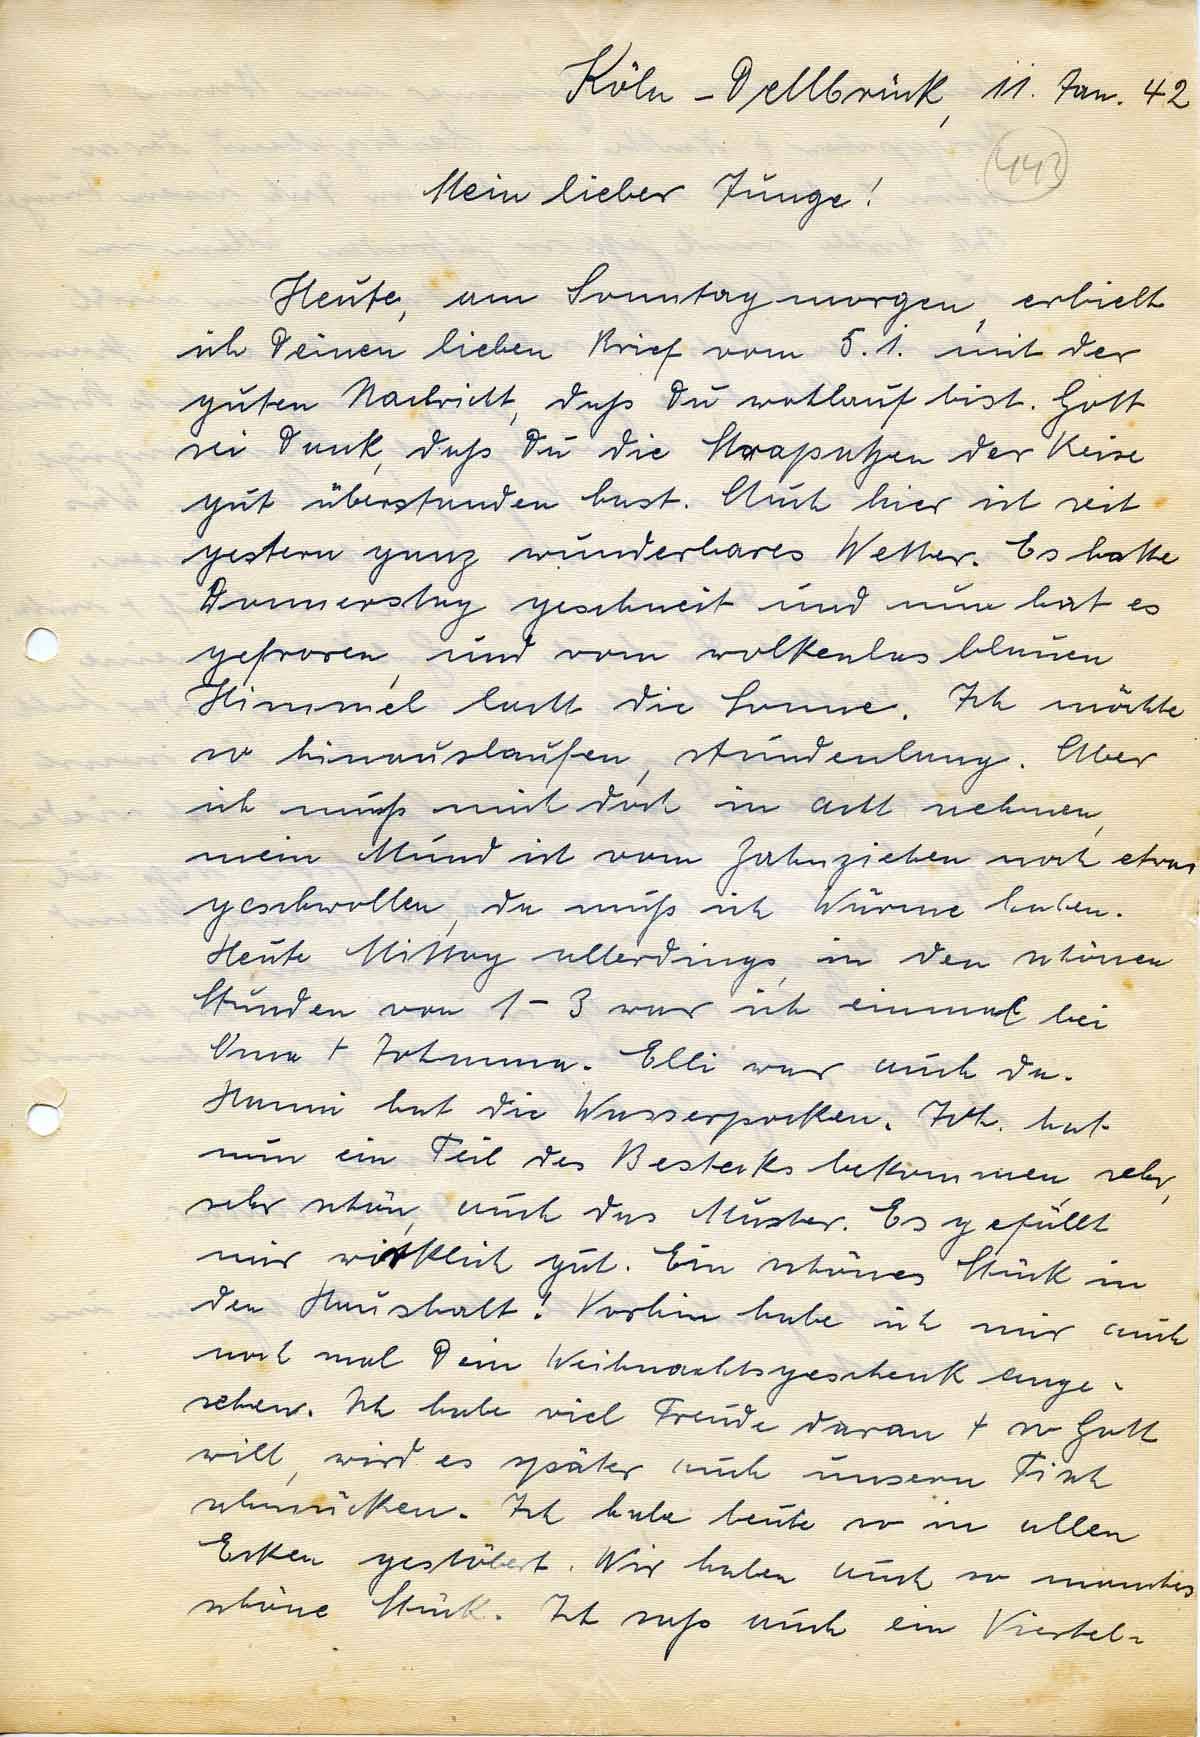 Köln-Dellbrück, 11. Jan. 42
443
Mein lieber Junge!
Heute, am Sonntagmorgen, erhielt
ich Deinen lieben Brief vom 5.1. mit der
guten Nachricht, daß Du wohlauf bist. Gott
sei Dank, daß Du die Strapatzen der Reise
gut überstanden hast. Auch hier ist seit
gestern ganz wunderbares Wetter. Es hatte
Donnerstag geschneit und nun hat es
gefroren, und vom wolkenlos blauen
Himmel lacht die Sonne. Ich möchte
so hinauslaufen, stundenlang. Aber
ich muß mich doch in acht nehmen,
mein Mund ist vom Zahnziehen noch etwas
geschwollen, da muß ich Wärme haben.
Heute Mittag allerdings, in den schönen
Stunden von 1-3 war ich einmal bei
Oma + Johanna. Elli war auch da.
Hanni hat die Wasserpocken. Joh. hat
nun ein Teil des Bestecks bekommen, sehr,
sehr schön, auch das Muster. Es gefällt
mir wirklich gut. Ein schönes Stück in
den Haushalt! Vorhin habe ich mir auch
noch mal Dein Weihnachtsgeschenk ange-
sehen. Ich habe viel Freude daran + so Gott
will, wird es später auch unsern Tisch
schmücken. Ich habe heute so in allen
Ecken gestöbert. Wir haben auch so manches
schöne Stück. Ich saß auch ein Viertel-